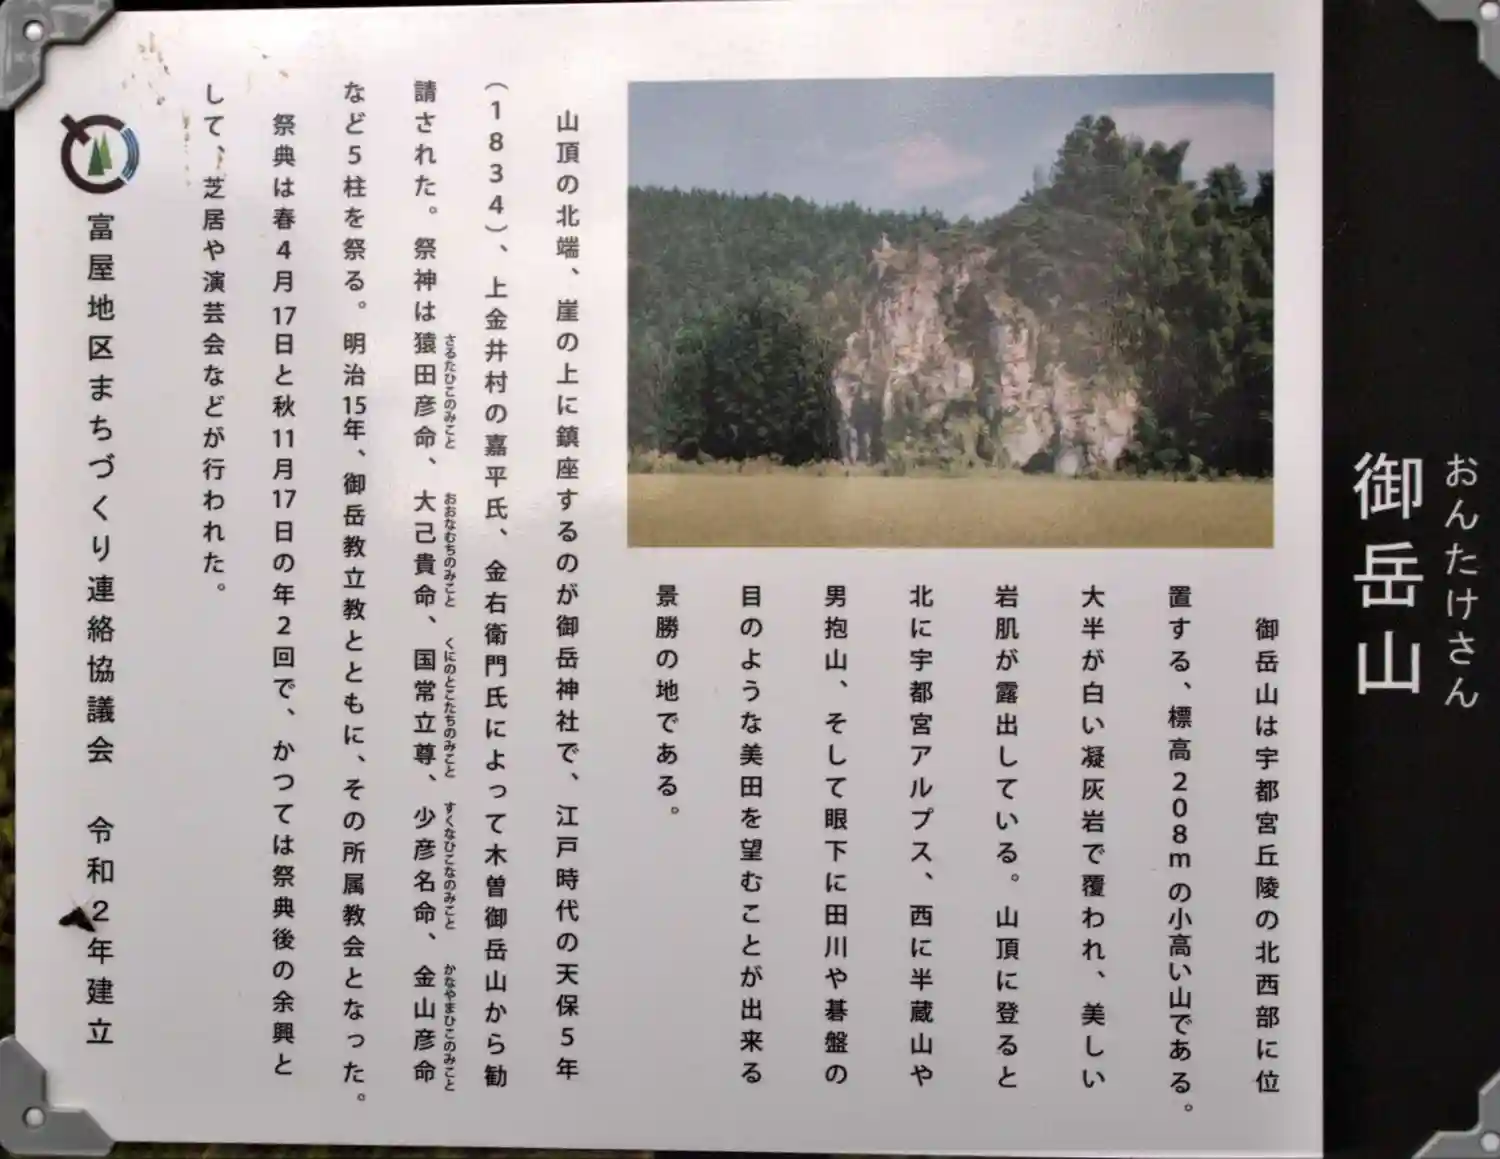 おんたけさん
御岳山
御岳山は宇都宮丘陵の北西部に位
置する、標高208mの小高い山である。
大半が白い凝灰岩で覆われ、美しい
岩肌が露出している。山頂に登ると
北に宇都宮アルプス、西に半蔵山や
男抱山、そして眼下に田川や碁盤の
目のような美田を望むことが出来る
景勝の地である。
山頂の北端、崖の上に鎮座するのが御岳神社で、江戸時代の天保5年
(1834)、上金井村の嘉平氏、金右衛門氏によって木曽御岳山から勧
さるたひこのみこと おおなむちのみこと くにのとこたちのみこと すくなひこなのみこと かなやまひこのみこと
請された。祭神は猿田彦命、大己貴命、国常立尊、少彦名命、金山彦命
など5柱を祭る。明治15年、御岳教立教とともに、その所属教会となった。
祭典は春4月17日と秋11月17日の年2回で、かつては祭典後の余興と
して、芝居や演芸会などが行われた。
富屋地区まちづくり連絡協議会 令和2年建立